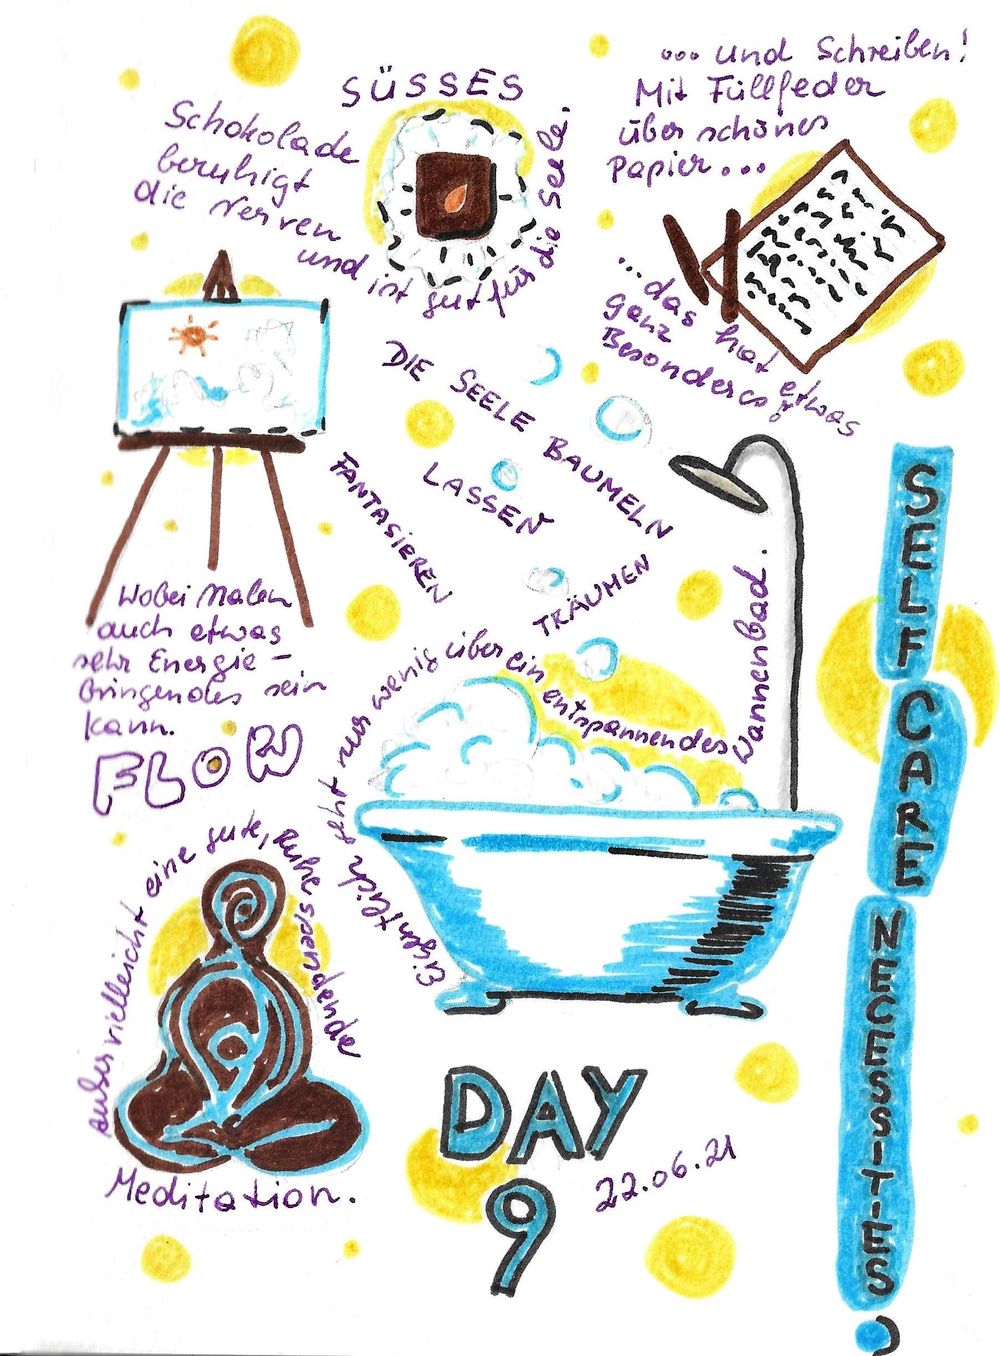 SÜSSES
Schokolade
beruhigt
die Nerven
und ist gut für die Seele.
... und Schreiben!
Mit Füllfeder
über schönes
Papier...
...das hat etwas
ganz
Besonderes!
DIE SEELE BAUMELN
LASSEN
FANTASIEREN
TRÄUMEN
Wobei Malen
auch etwas
sehr Energie-
bringendes sein
kann.
FLOW
Eigentlich geht nur wenig über ein entspannendes Wannenbad.
außer vielleicht eine gute, Ruhe spendende
Meditation.
DAY
9
22.06.21
SELF CARE NECESSITIES